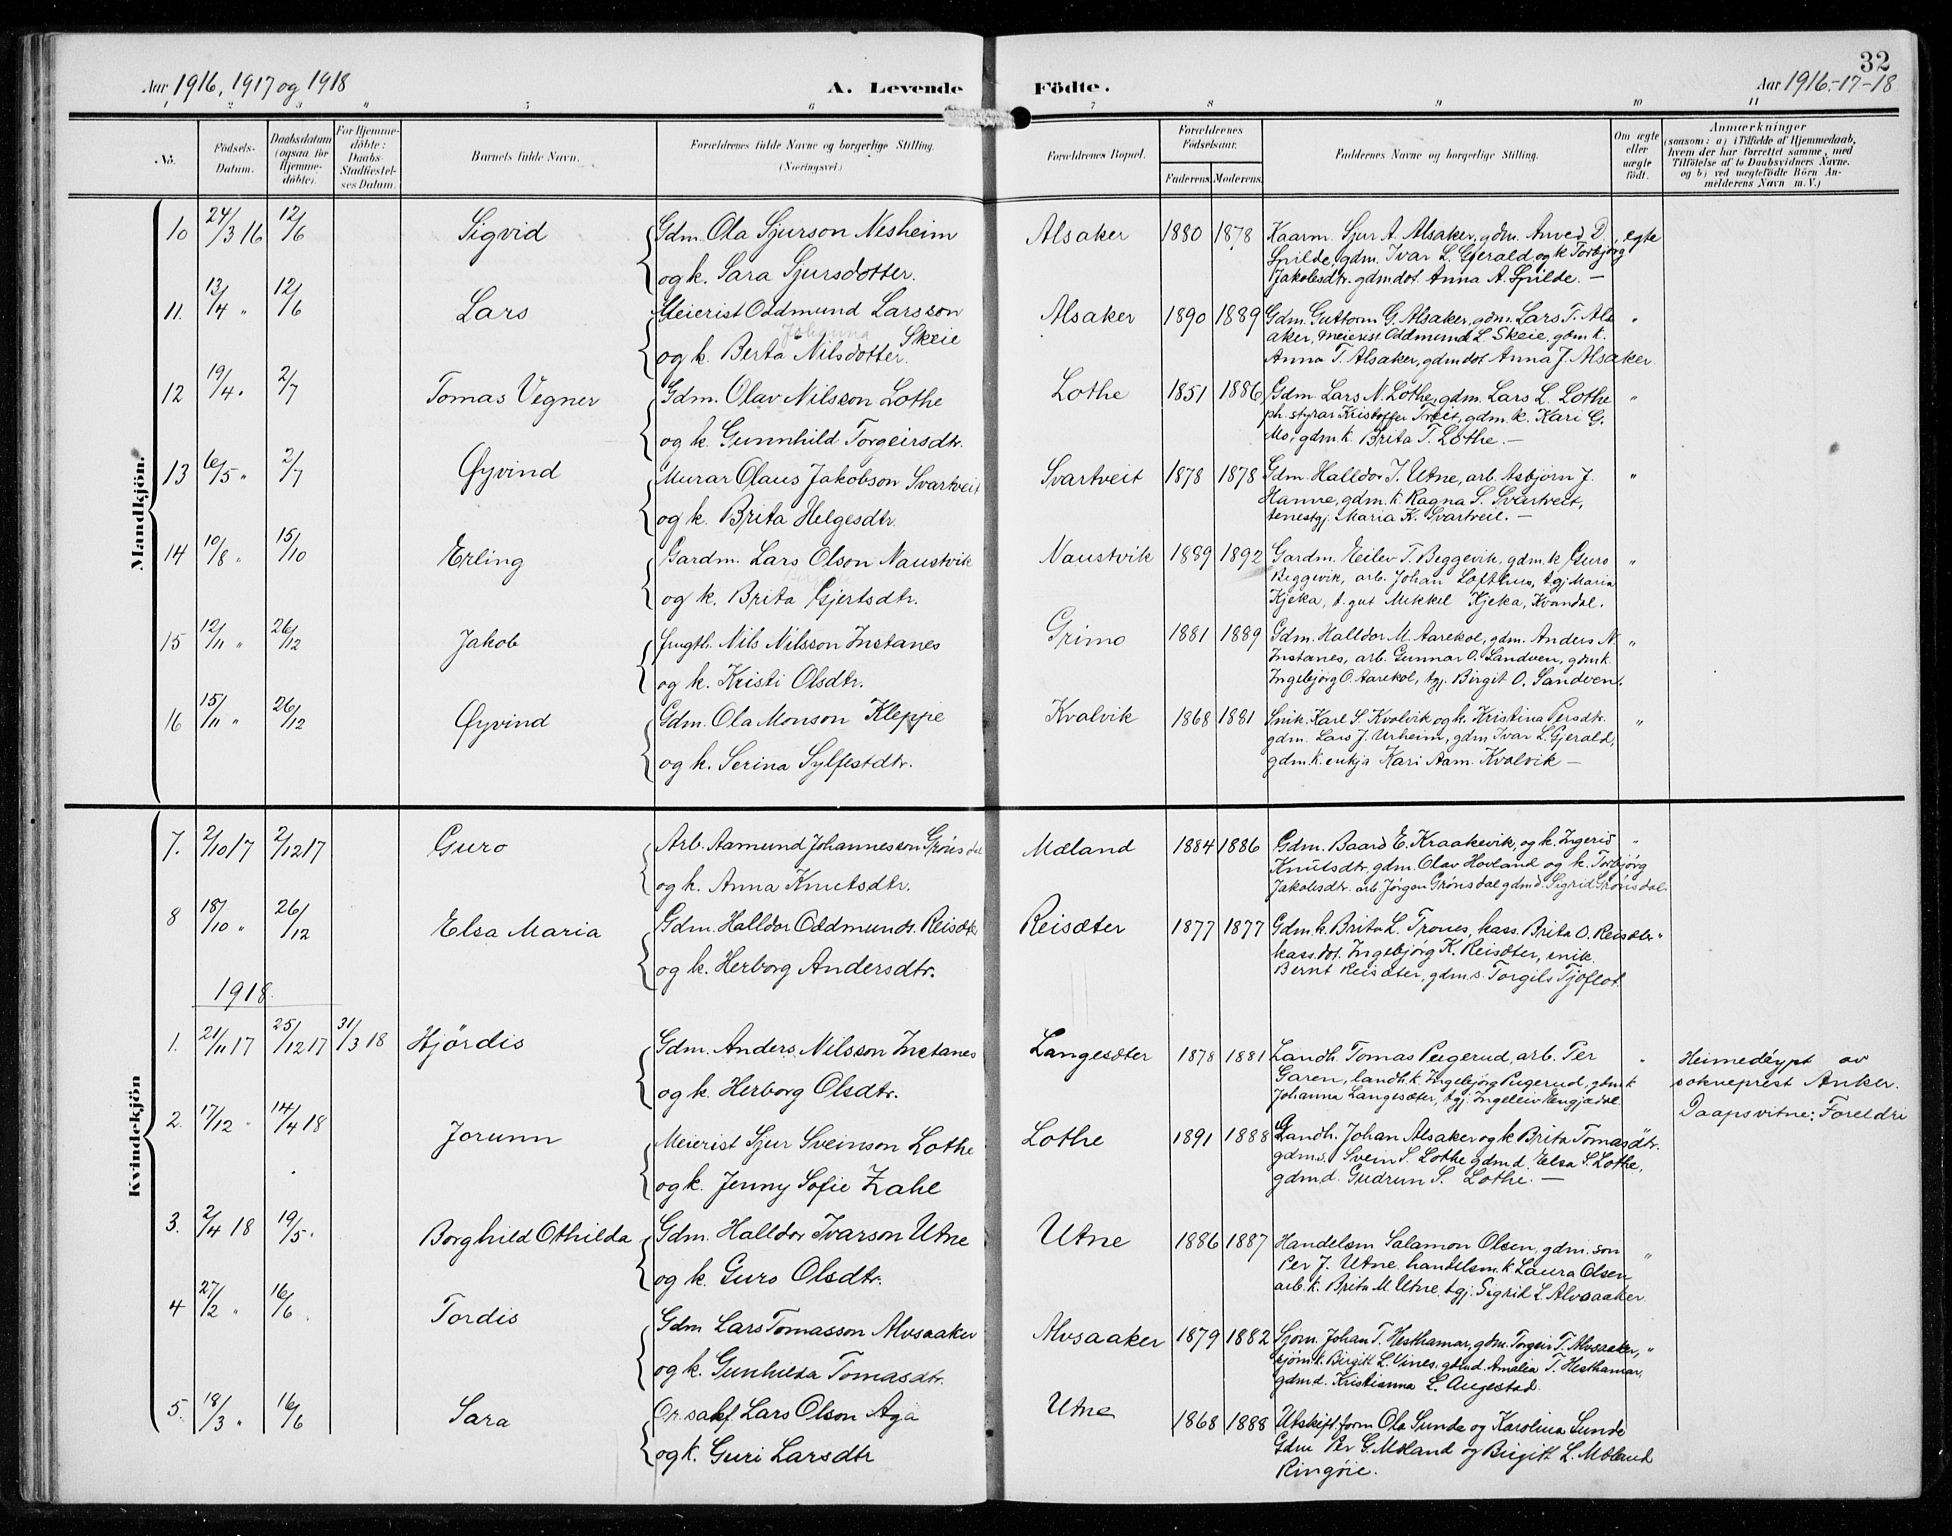 Aar 1916, 1917 og 1918 A. Levende Födte. Aar 1916-17-18
32
1 2 3 " 5 6 7 8 9 10 11
No. Födsels-Datum. Daabsdatum (ogsaa for Hjemmedöbte). For Hjemmedöbte: Daabs-Stadfæstelses Datum. Barnets fulde Navn. Forældrenes fulde Navne og borgerlige Stilling. (Næringsvei.) Forældrenes Bopæl. Forældrenes Födselsaar. Faderens. Moderens. Faddernes Navne og borgerlige Stilling. Om ægte eller uægte födt. Anmærkninger (saasom: a) i Tilfælde af Hjemmedaab, hvem der har forrettet samme, med Tilföielse af to Daabsvidners Navne, og b) ved uægtefödte Börn Anmelderens Navn m. V.)
Mandkjön.
10 24/3 16 12/6 Sigvid Gdm. Ola Sjurson Nesheim Alsaker 1880 1878 Kaarm. Sjur A. Alsaker, gdm. Amed D. egte
og k. Sara Sjursdotter. Spilde, gdm. Ivar L. Gjerald og k Torbjørg
Jakobsdtr. gdmdot Anna A. Spilde. —
11. 13/4 " 12/6 Lars Meierist Oddmund Larsson Skeie Alsaker 1890 1889 Gdm. Guttorm G. Alsaker, gdm. Lars T. Als "
Johanna
og k. Berta Nilsdotter. aker, meierist Oddmund L. Skeie, gdm k.
Anna T. Alsaker, gdmdot Anna J. Alsaker
12 19/4 " 2/7 Tomas Vegner Gdm. Olav Nilsson Lothe Lothe 1851 1886 Gdm. Lars N. Lothe, gdm. Lars L. Lothe "
og k. Gunnhild Torgeirsdtr. ph. styrar Kristoffer Tveit, gdm k. Kari G.
Mo, gdm k. Brita T. Lothe. —
13 6/5 " 2/7 Øyvind Murar Olaus Jakobson Svartveit Svartveit 1878 1878 Gdm. Halldor J. Utne, arb. Asbjørn J. "
og k. Brita Helgesdtr. Hanne, gdm. k Ragna S. Svartveit,
tenestgj. Maria K. Svartveit. —
14 10/8 " 15/10 Erling Gardm. Lars Olson Naustvik Naustvik 1889 1892 Gardm. Eilev T. Beggevik, gdm. k Guro "
og k. Brita Gjertsdtr. Beggevik, arb. Johan Lofthus, tgj Maria
Kjeka, t. gut Mikkel Kjeka, Kvandal.
15 12/11 " 26/12 Jakob frugth. Nils Nilsson Instanes Grimo 1881 1889 Gdm. Halldor M. Aarekol, gdm. Anders N. "
og k. Kristi Olsdtr. Instanes, arb. Gunnar O. Sandven, gdm k.
Ingebjørg O. Aarekol, tgj. Birgit O. Sandven.
16 15/11 " 26/12 Øyvind Gdm. Ola Monson Kleppe Kvalvik 1868 1881 Snik. Karl S. Kvalvik og k. Kristina Persdtr. "
og k. Serina Sylfestdtr. gdm. Lars J. Urheim, gdm Ivar L. Gjerald,
gdm. k. enkja Kari Aam. Kvalvik —
Kvindekjön
7. 2/10 17 2/12 17 Guro Arb. Aamund Johannesson Grønsdal Mæland 1884 1886 Gdm. Baard E. Kraakevik, og k. Ingerid "
og k. Anna Knutsdtr. Knutsdtr, gdm. Olav Hovland og k. Torbjørg
Jakobsdtr. arb. Jørgen Grønsdal gdmd. Sigrid Grønsdal.
8 18/10 " 26/12 Elsa Maria Gdm. Halldor Oddmunds. Reisæter Reisæter 1877 1877 Gdm. k. Brita L. Trones, kass. Brita O. Reisæter "
og k. Herborg Andersdtr. kass. dot. Ingebjørg K. Reisæter, snik.
Bernt Reisæter, gdm. s. Torgils Tjoflot.
1918.
1. 21/11 17 25/12 17 31/3 18 Hjördis Gdm. Anders Nilsson Instanes Langesæter 1878 1881 Landh. Tomas Pugerud, arb. Per " Heimedøypt av
og k. Herborg Olsdtr. Garen, landh. k. Ingebjørg Pugerud, gdm k sokneprest Anker.
Johanna Langesæter, tgj. Ingeleiv Engjadal Daapsvitne: Foreldri
2. 17/12 " 14/4 18 Jorunn Meierist Sjur Sveinson Lothe Lothe 1891 1888 Landh. Johan Alsaker og k Brita Tomasdtr.
og k. Jenny Sofie Zahl gdm s. Svein S. Lothe, gdm d. Elsa S. Lothe,
gdm d. Gudrun S. Lothe. —
3. 2/4 18 19/5 " Borghild Othilda Gdm. Halldor Ivarson Utne Utne 1886 1887 Handelsm Salamon Olsen, gdm. son "
og k. Guro Olsdtr. Per J. Utne, handelsm. k Laura Olsen
arb. k. Brita M. Utne, tgj. Sigrid L. Alvsaaker.
4 27/2 " 16/6 Tordis Gdm Lars Tomasson Alvsaaker Alvsaaker 1879 1882 Sjøm. Johan T. Hesthamar, gdm. Torgeir T. Alvsaaker, "
og k. Gunhilda Tomasdtr. sjøm. k. Birgit L. Vines, gdmd. Amalia T. Hesthamar,
gdmd. Kristianna L. Augestad.
5. 18/3 " 16/6 Sara O.r.sakf. Lars Olson Aga Utne 1868 1888 Utskift. form Ola Sunde og Karolina Sunde
og k. Guri Larsdtr Gdm Per G. Mæland og Birgit L. Mæland
Ringøie.